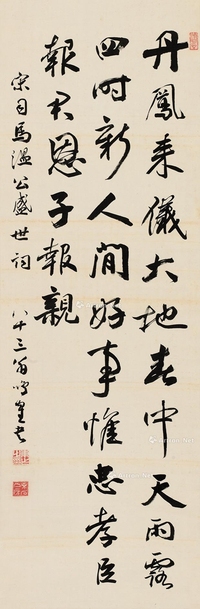 丹鳳来儀大地春中天雨露
四时新人間好事惟忠孝臣
報君恩子報親
宋司馬溫公盛世詞 八十三翁